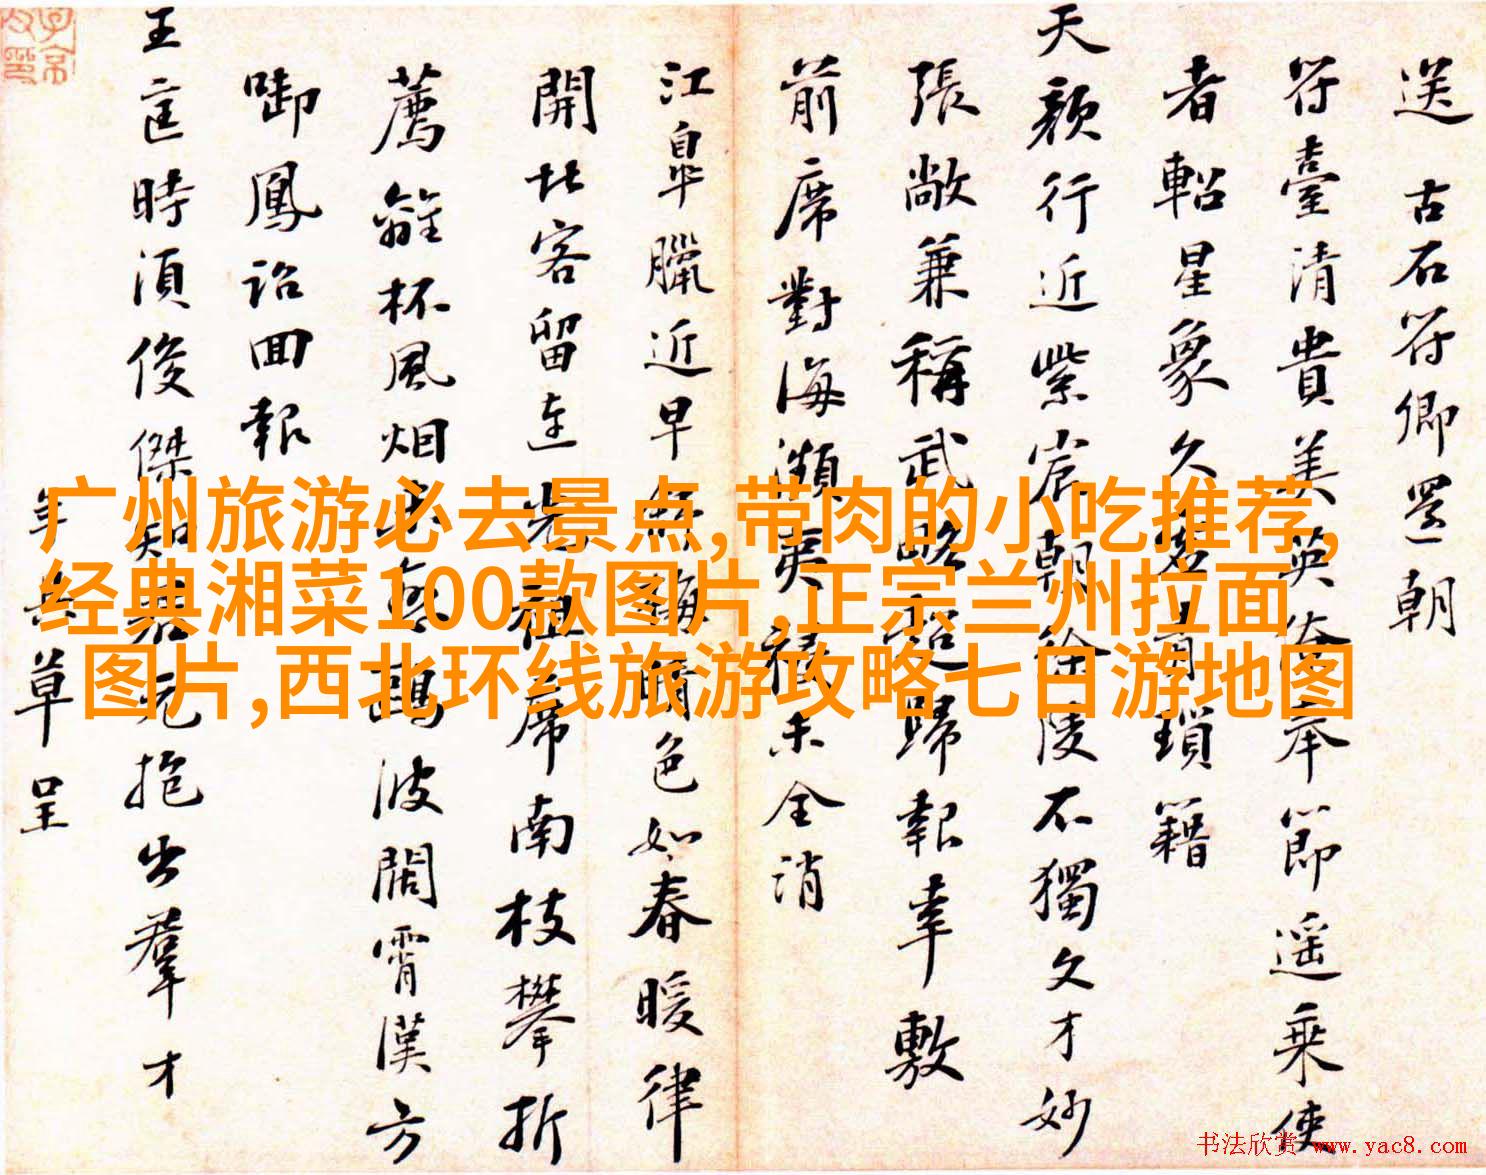 送 古石符卿還朝
符臺清貴美英僚奉節遥乘使
者軺星象久 瑣籍
天顏行近紫宸朝徐陵不獨文才妙
張敞兼稱武略超歸報幸敷
前席對海瀕夷 未全消
江皋臘近早 梅晴色如春暖律
開北客留連 祖席南枝攀折
薦離杯風烟 波闊霄漢方
啣鳳詔回報
王 時須俊傑知君元抱出羣才
年 草呈
广州旅游必去景点,带肉的小吃推荐,
经典湘菜100款图片,正宗兰州拉面
图片,西北环线旅游攻略七日游地图
书法欣赏 www.yac8.com